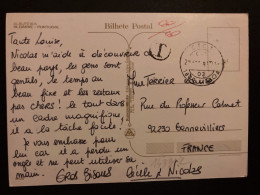 Bilhete Postal
Tante Louise,
Nicolas m'aide à découvrir ce
beau pays, les gens sont
génials, le temps au
beau fixe et les restaus
pas chers! le tout dans
un cadre magnifique,
il a la tâche facile!
Je vous embrasse pour
lui car il a perdu un
ongle et ne peut utiliser sa
main.
Gros Bisous Gisèle & Nicolas
T
03
Terrier
Rue du Professeur Calmet
92230 Gennevilliers
FRANCE